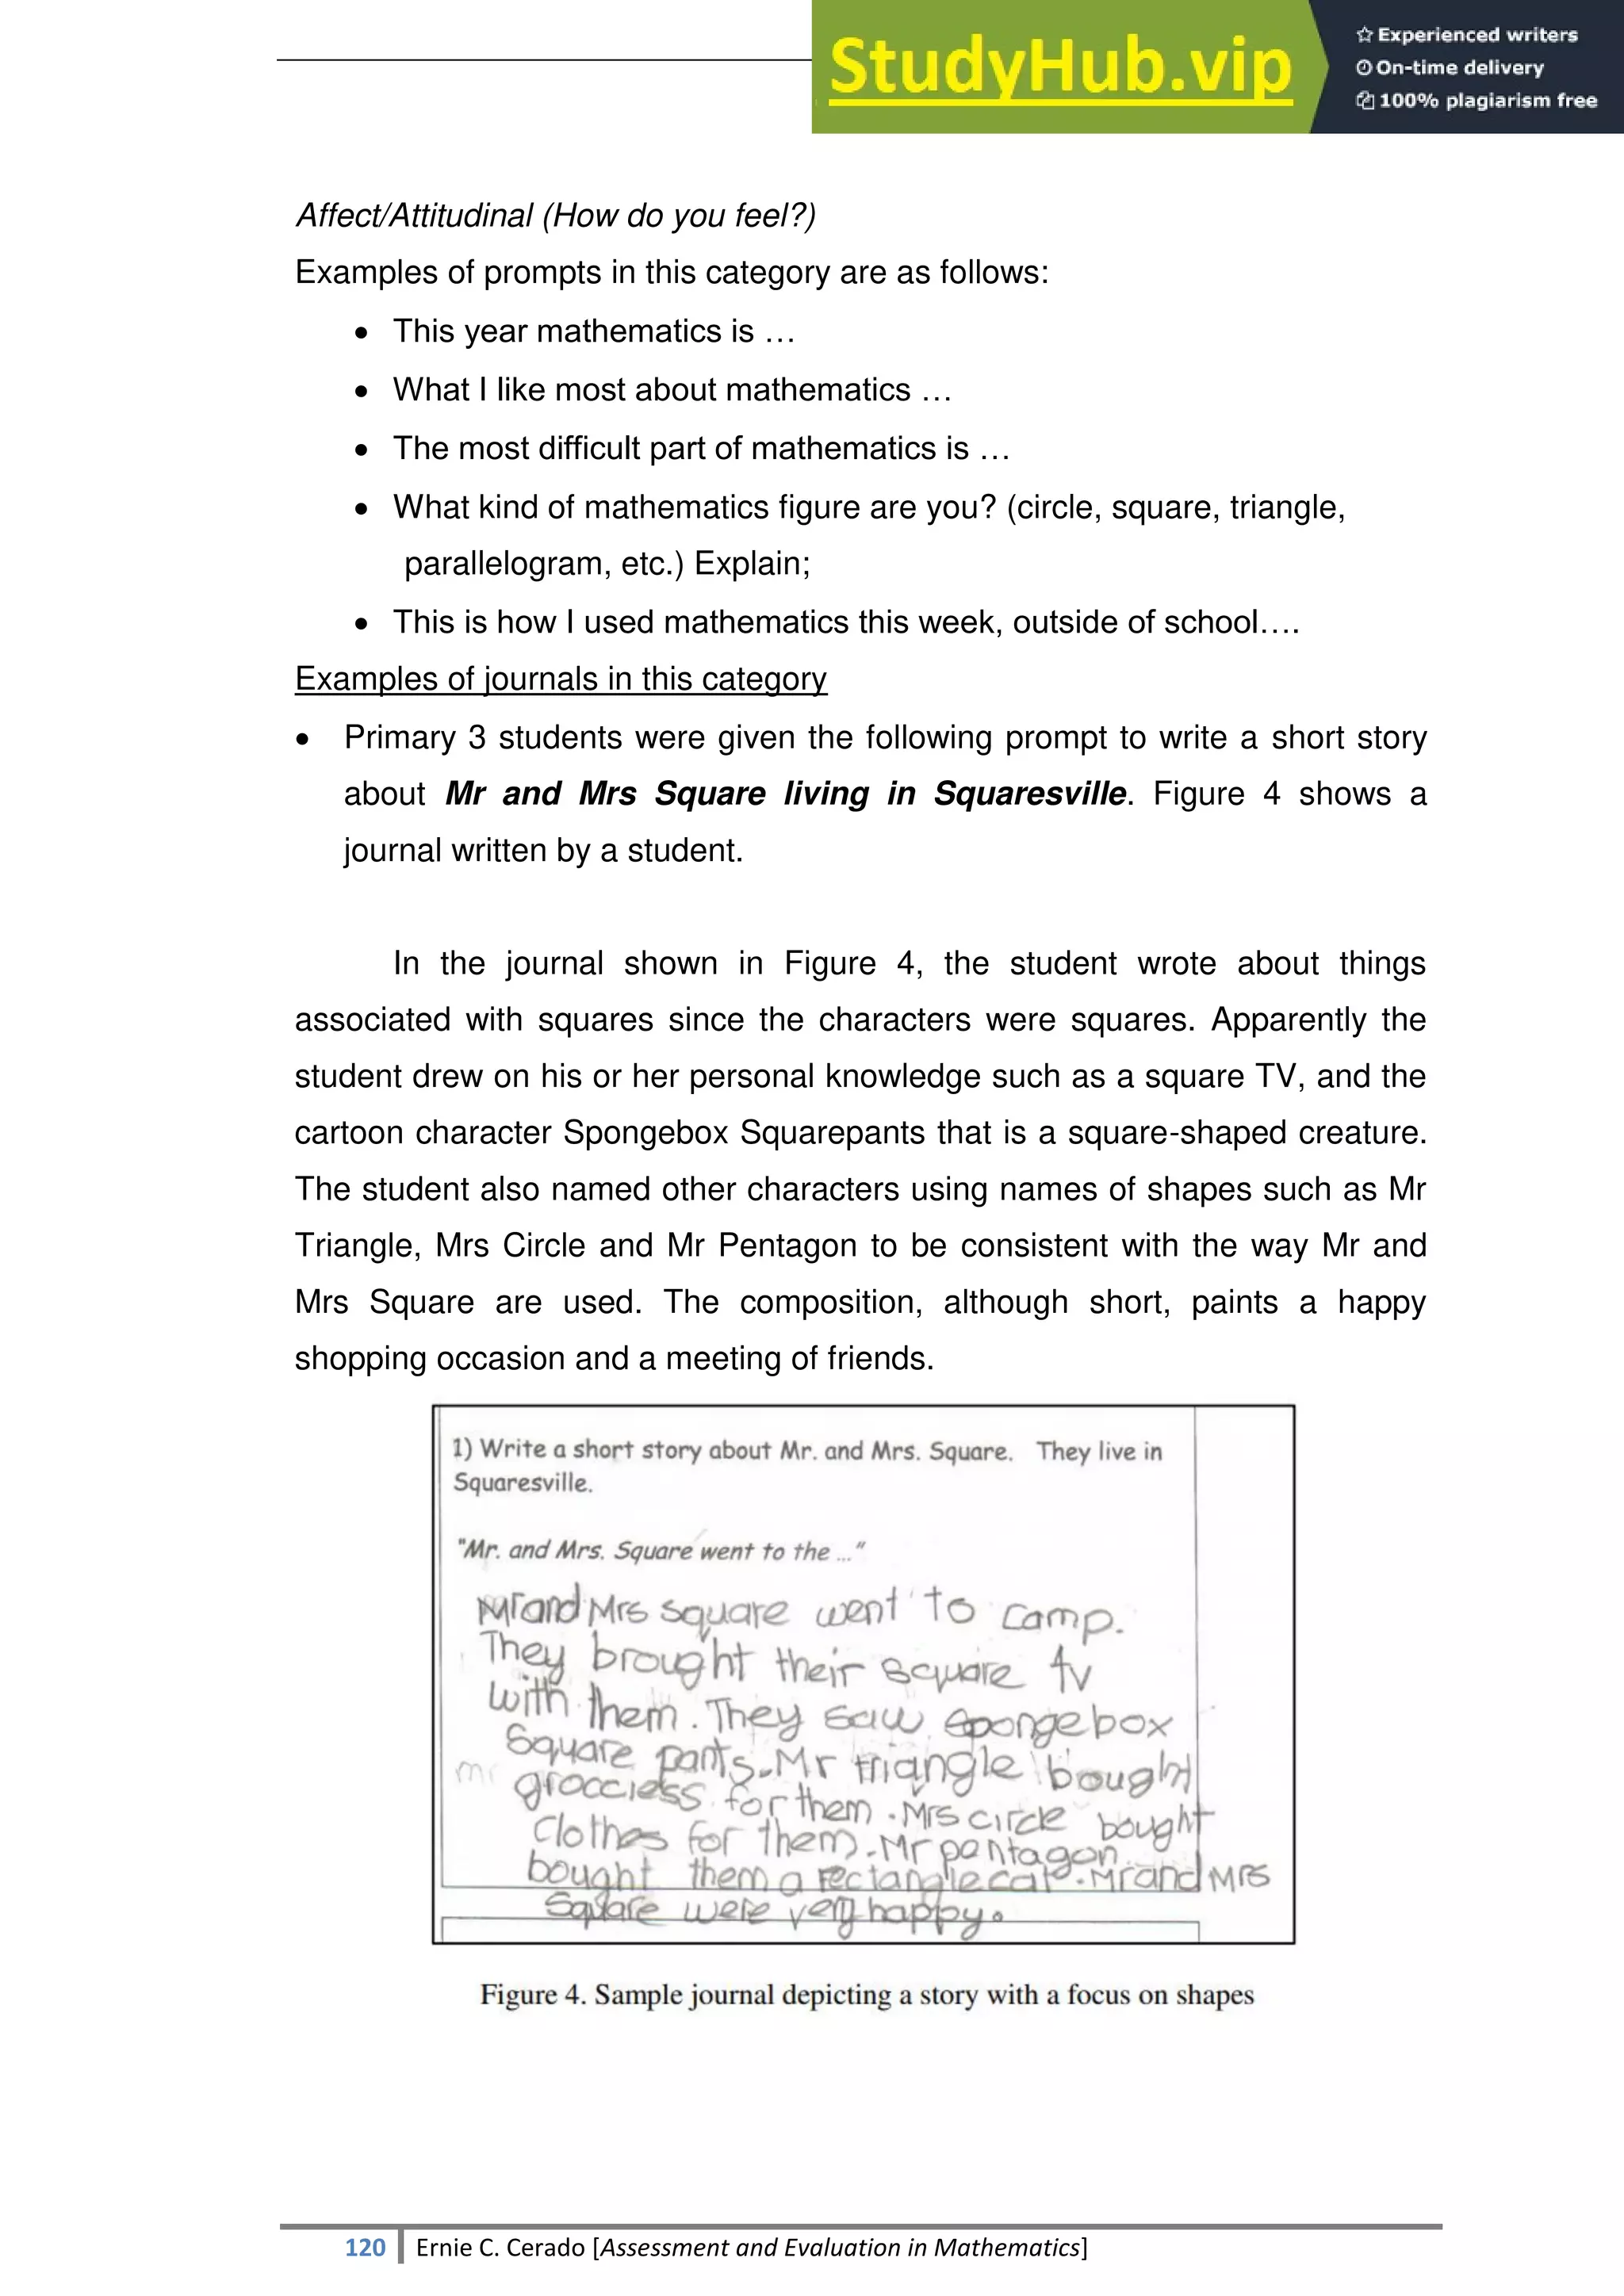 StudyHub.vip
Experienced writers
On-time delivery
100% plagiarism free
Affect/Attitudinal (How do you feel?)
Examples of prompts in this category are as follows:
• This year mathematics is …
• What I like most about mathematics …
• The most difficult part of mathematics is …
• What kind of mathematics figure are you? (circle, square, triangle,
parallelogram, etc.) Explain;
• This is how I used mathematics this week, outside of school….
Examples of journals in this category
• Primary 3 students were given the following prompt to write a short story
about Mr and Mrs Square living in Squaresville. Figure 4 shows a
journal written by a student.
In the journal shown in Figure 4, the student wrote about things
associated with squares since the characters were squares. Apparently the
student drew on his or her personal knowledge such as a square TV, and the
cartoon character Spongebox Squarepants that is a square-shaped creature.
The student also named other characters using names of shapes such as Mr
Triangle, Mrs Circle and Mr Pentagon to be consistent with the way Mr and
Mrs Square are used. The composition, although short, paints a happy
shopping occasion and a meeting of friends.
1) Write a short story about Mr. and Mrs. Square. They live in
Squaresville.
"Mr. and Mrs. Square went to the ..."
Mr and Mrs square went to camp.
They brought their square tv
with them. They saw spongebox
square pants. Mr triangle bought
for them. Mrs circle bought
clothes for them. Mr pentagon
bought them a rectangle . Mr and Mrs
Square were very happy.
Figure 4. Sample journal depicting a story with a focus on shapes
120 Ernie C. Cerado [Assessment and Evaluation in Mathematics]